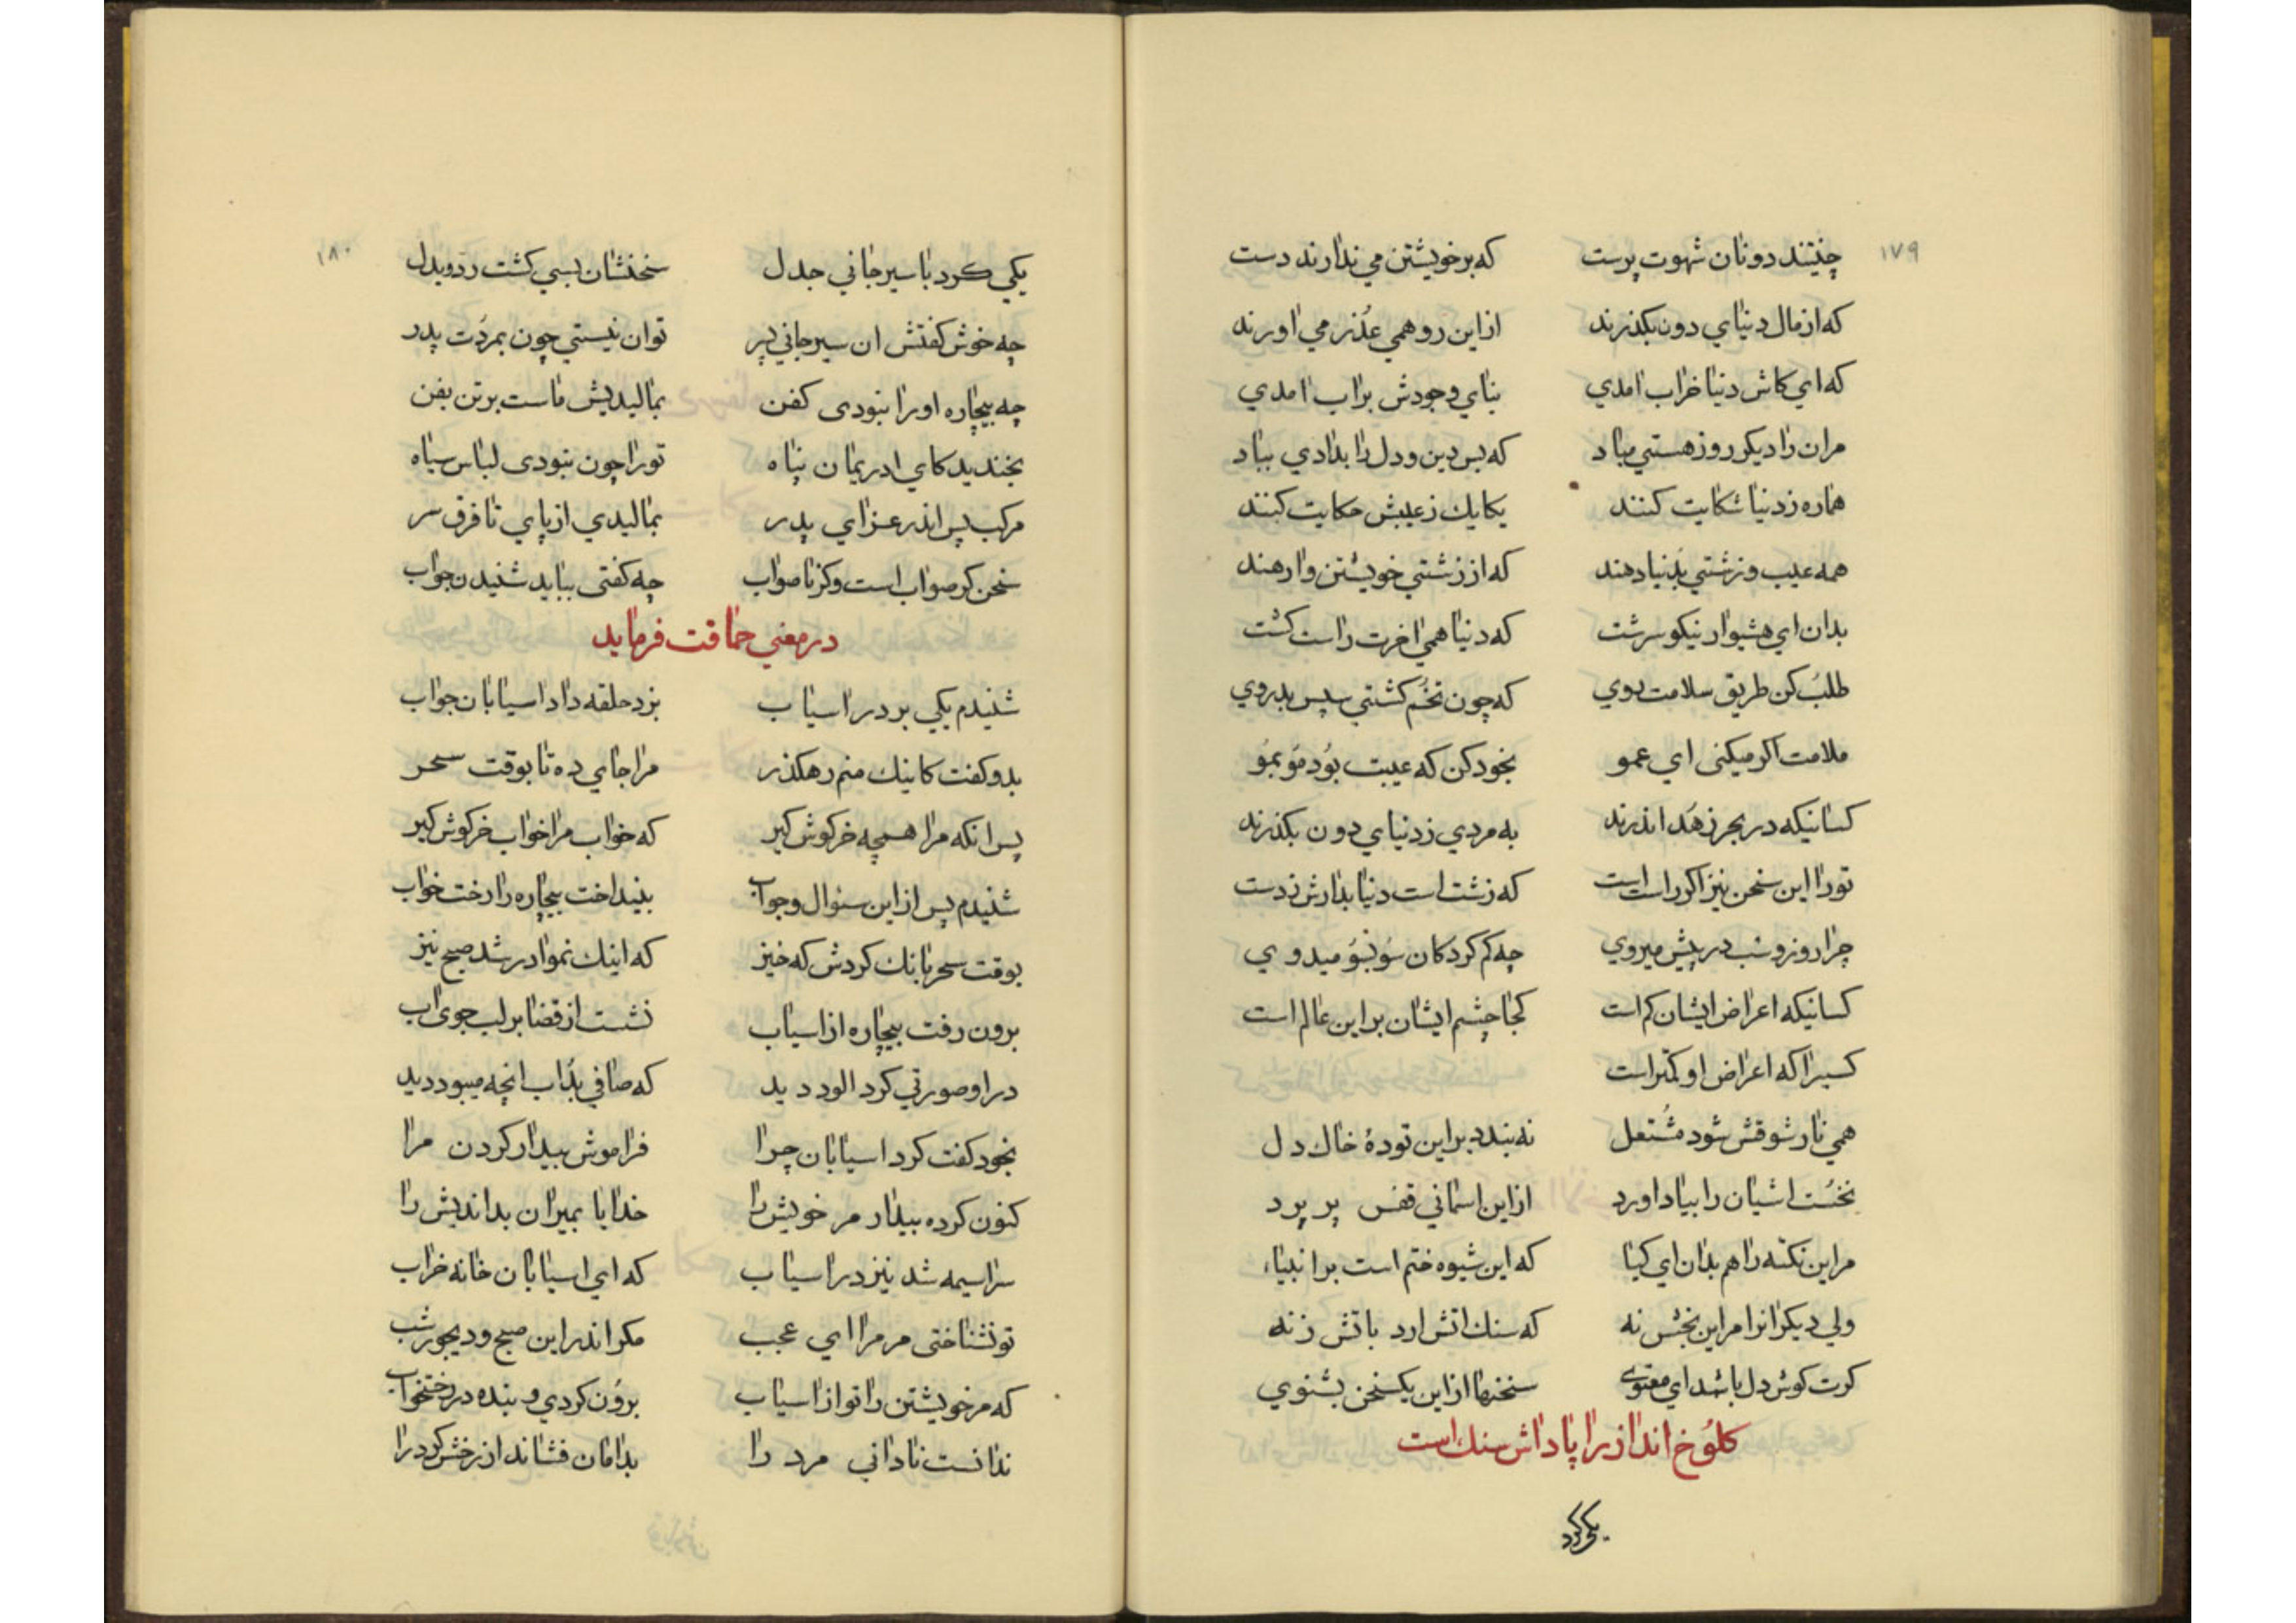 ۱۷۹
چنینند دونان شهوت پرست که بر خویشتن می ندارند دست
که از مال دنیای دون بکذرند از این رو همی عذر می اورند
که ای کاش دنیا خراب امدی بنای وجودش براب امدی
مران را دیکر روز هستی مباد که بس دین و دل را بدادی بباد
هماره ز دنیا شکایت کنند یکایك ز عیبش حکایت کنند
همه عیب و زشتی بدنیا دهند که از زشتی خویشتن وارهند
بدان ای هشیوار نیکو سرشت که دنیا همی اخرت راست کشت
طلب کن طریق سلامت روی که چون تخم کشتی سپس بدروی
ملامت اکر میکنی ای عمو بخود کن که عیبت بود مو بمو
کسانیکه در بحر زهد اندرند به مردی ز دنیای دون بکذرند
تورا این سخن نیز اکر راست است که زشت است دنیا بدارش ز دست
چرا روز و شب در پیش میروی چه کم کردکان سو بسو میدوی
کسانیکه اعراض ایشان کم است کجا چشم ایشان بر این عالم است
کسیرا که اعراض او کمتر است
همی نار شوقش شود مشتعل نه بندد براین تودهٔ خاك دل
نخست اشیان را بیاد اورد از این استانی قفس بر پرد
مراین نکته را هم بدان ای کیا که این شیوه ختم است بر انبیاء
ولی دیکرانرا مراین بخش نه که سنك اتش ارد باتش زنه
کرت کوش دل باشد ای معنوی سخنها از این یکسخن بشنوی
کلوخ انداز را پاداش سنك است
یکی کرد
۱۸۰
یکی کرد با سیرجانی جدل سخنشان بسی کشت رد و بدل
چه خوش کفتش ان سیرجانی پر توان نیستی چون بمردت پدر
چه بیچاره او را نبودی کفن بمالیدیش ماست برتن بفن
بخندید کای ادریمان پناه تورا چون نبودی لباس سیاه
مرکب پس اندر عزای پدر بمالیدی از پای تا فرق سر
سخن کر صواب است وکر ناصواب چه کفتی بباید شنیدن جواب
در معنی حماقت فرماید
شنیدم یکی بر در اسیاب بزد حلقه داد اسیابان جواب
بدو کفت کاینك منم رهکذر مرا جای ده تا بوقت سحر
پس انکه مرا همچه خرکوش کیر که خواب مرا خواب خرکوش کیر
شنیدم پس از این سئوال و جواب بنیداخت بیچاره را رخت خواب
بوقت سحر بانك کردش که خیز که اینك نمودار شد صبح نیز
برون رفت بیچاره از اسیاب نشست از قضا بر لب جوی اب
در او صورتی کرد الود دید که صافی بد اب انچه میبود دید
بخود کفت کرد اسیابان چرا فراموش بیدار کردن مرا
کنون کرده بیدار مر خویش را خدایا بمیران بداندیش را
سراسیمه شد نیز در اسیاب که ای اسیابان خانه خراب
تو نشناختی مر مرا ای عجب مکر اندر این صبح و دیجور شب
که مر خویشتن را تو از اسیاب برون کردی و بنده در رختخواب
ندانست نادانی مرد را بدامان فشاند از رخش کرد را